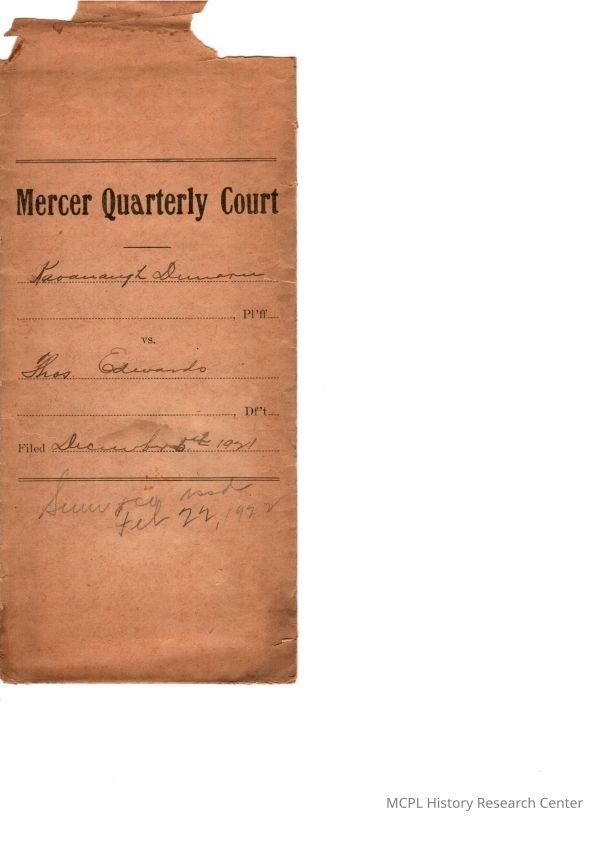 Mercer Quarterly Court
Kavanaugh
, Pl'ff
vs.
Thos. Edwards
, Df't
Filed December 5th 1921
issd
Feb 22, 1922
MCPL History Research Center